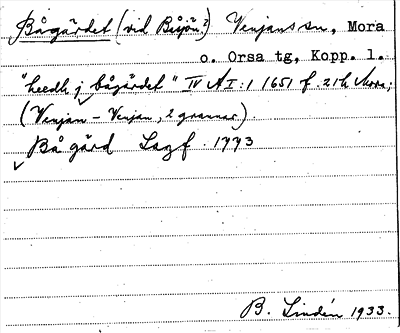 Bågärdet (vid Båsjön?) Venjans sn, Mora
o. Orsa tg, Kopp. l.
"heedh j bågärdet" IV A I:1 1651 f. 21 h Mora;
(Venjan - Venjan, 2 grannar).
Bå gård Lagf. 1773
B. Lindén 1933.